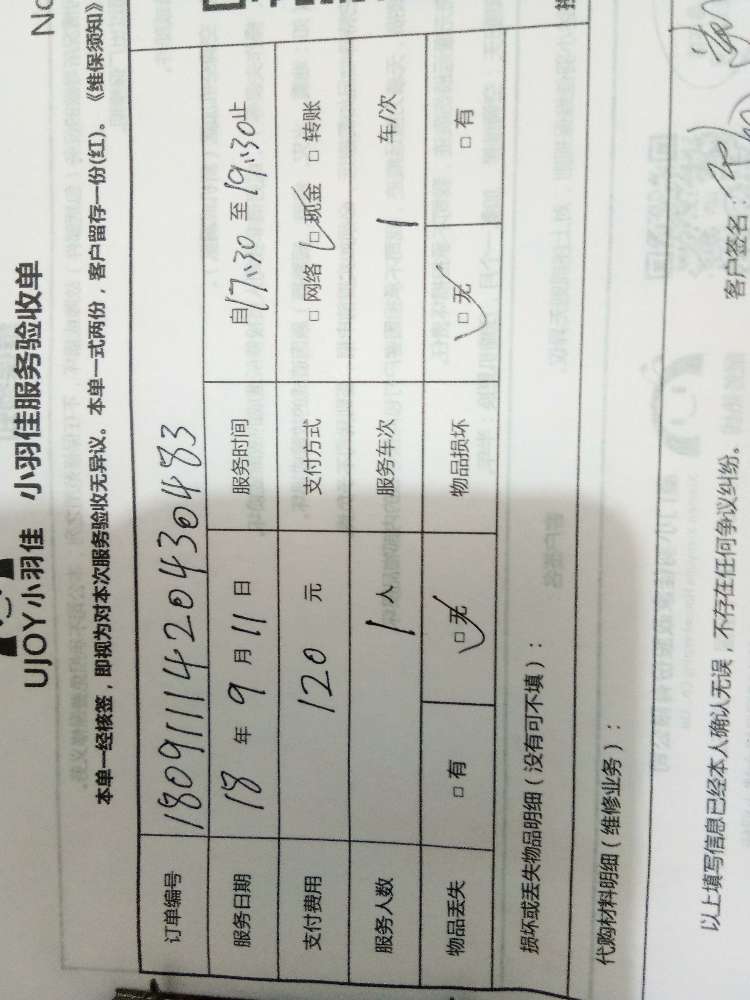 No
UJOY小羽佳 小羽佳服务验收单
本单一经核签，即视为对本次服务验收无异议。本单一式两份，客户留存一份(红)。《维保须知》
订单编号 180911142043 0483
服务日期 18 年 9 月 11 日 服务时间 自17:30 至 19:30止
支付费用 120 元 支付方式 □ 网络 □ 现金 □ 转账
服务人数 1 人 服务车次 1 车/次
物品丢失 □ 有 □ 无 物品损坏 □ 无 □ 有
损坏或丢失物品明细（没有可不填）：
代购材料明细（维修业务）：
以上填写信息已经本人确认无误，不存在任何争议纠纷。 客户签名：